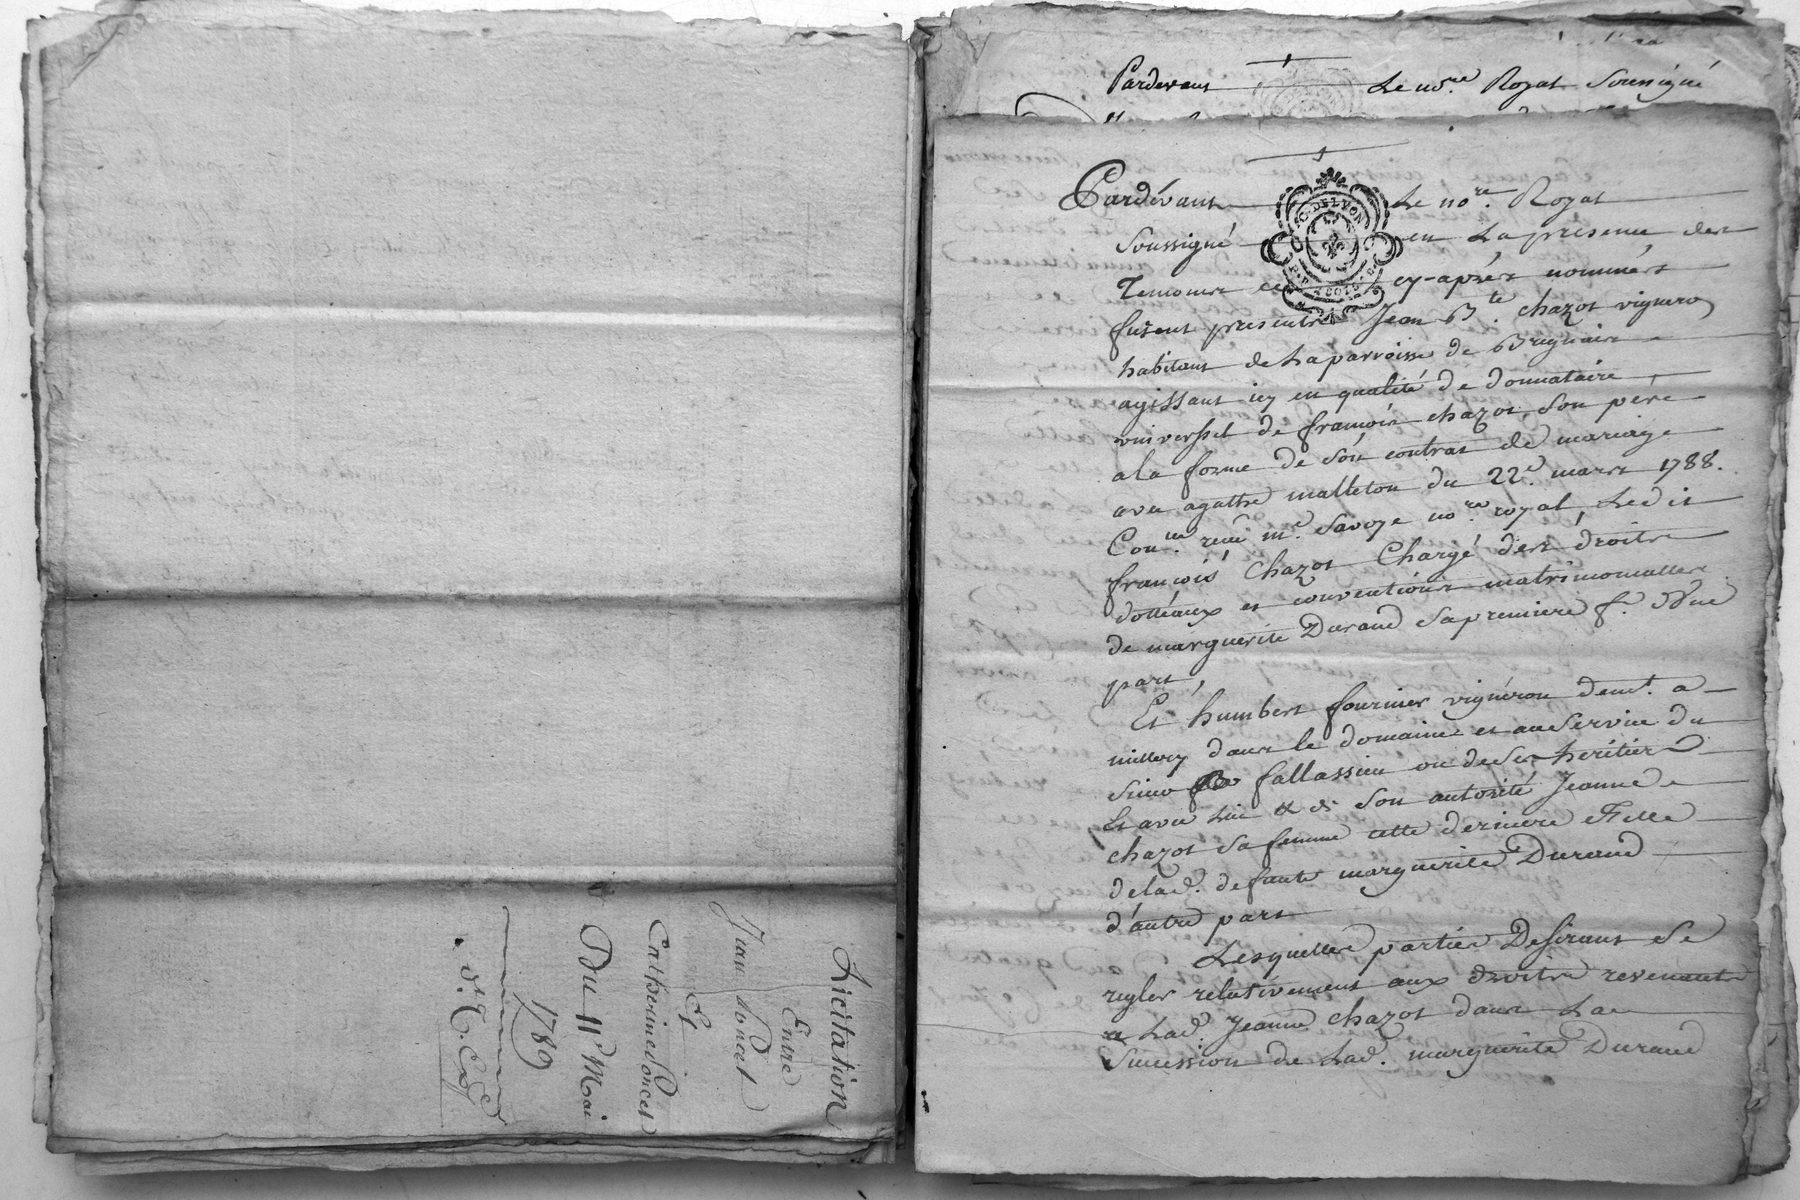 Licitation
Entre
Jean Poncet
Et
Catherine Poncet
Du 11e Mai
1789
Pardevant Le nore. Royal Soussigné
Pardévant Le nore. Royal
soussigné en La presence des
Temoins cy-aprés nommés
furent presents Jean Bte. chazot vigneron
habitant de La parroisse de Brignais
agissant icy en qualité de donnataire
universel de francois chazot, son pere
a la forme de son contrat de mariage
avec agathe malleton du 22e. mars 1788.
Conue. recu me. Savoye nore royal, Ledit
francois Chazot Chargé des droits
dotteaux et conventions matrimonialles
de marguerite Durand sa premiere f. d'une
part,
Et humbert fournier vigneron demt. a
millery dans le domaine et au service du
sieur fallassieu ou de ses heritiers
Et avec Lui & de son autorité Jeanne
chazot sa femme cette derniere fille
de lad. defunte marguerite Durand
d'autre part
Lesquelles parties Desirant se
regler relativement aux droits revenants
a Lad. Jeanne chazot dans La
succession de Lad. marguerite Durand